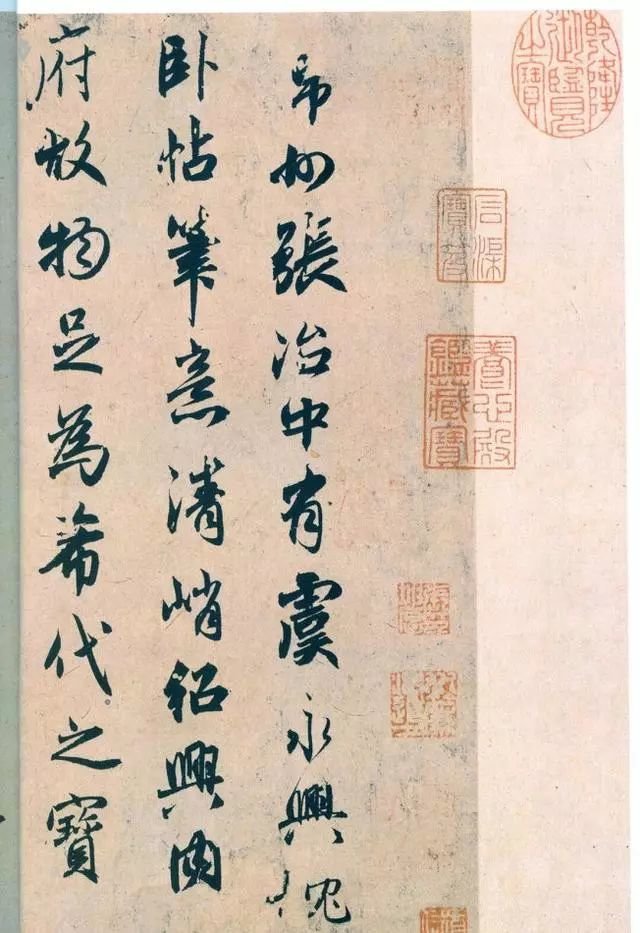 州張治中有虞永興枕
卧帖筆意清峭紹興内
府故物足為希代之寶
乾隆御覽之寶
石渠寶笈
養心殿鑑藏寶